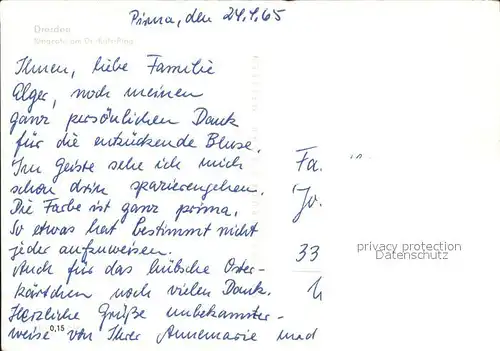 Pirna, den 24.4.65
Dresden
Ihnen, liebe Familie
Alger, noch meinen
ganz persönlichen Dank
für die entzückende Bluse.
Im Geiste sehe ich mich
schon drin spazierengehen.
Die Farbe ist ganz prima.
So etwas hat bestimmt nicht
jeder aufzuweisen.
Auch für das hübsche Oster-
kärtchen noch vielen Dank.
Herzliche Grüße unbekannter-
weise von Ihrer Annemarie und
0,15
Fa.
Jo.
33
privacy protection
Datenschutz